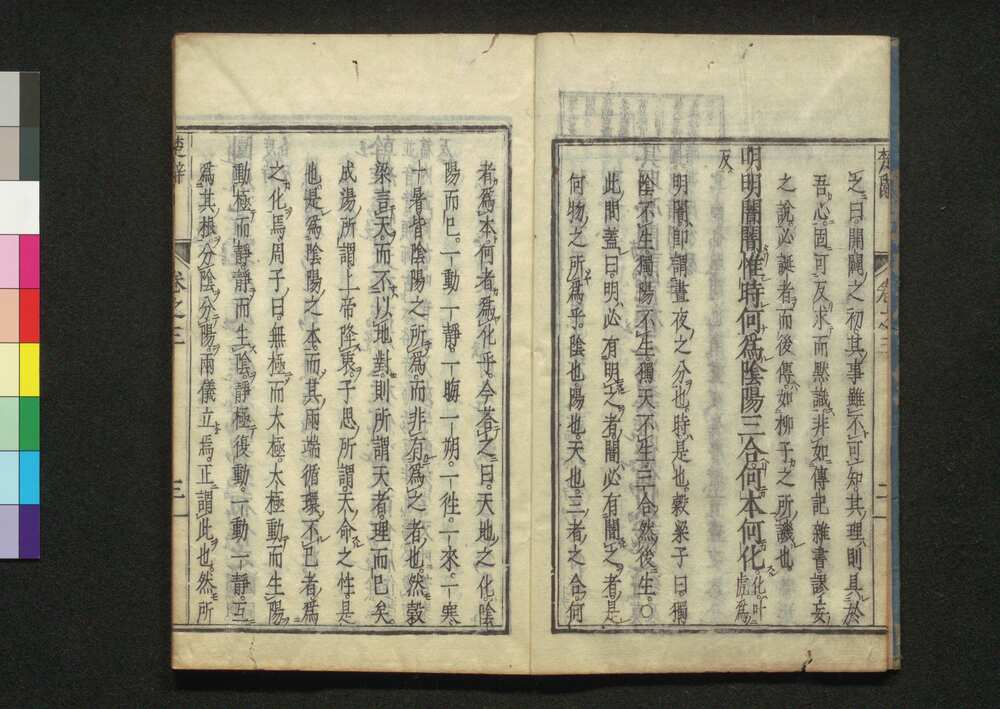 之曰。開闢之初。其事雖不可知。其理則具於
吾心。固可反求而默識。非如傳記雜書謬妄
之說。必誕者而後傳。如柳子之所譏也
明明闇闇惟時何爲陰陽三合何本何化 化。叶虎爲
反
明闇。即謂晝夜之分也。時是也。穀梁子曰。獨
陰不生。獨陽不生。獨天不生。三合然後生。○
此問蓋曰。明必有明之者。闇必有闇之者。是
何物之所爲乎。陰也。陽也。天也。三者之合。何
者爲本。何者爲化乎。今荅之曰。天地之化。陰
陽而已。一動一靜。一晦一朔。一徃一來。一寒
一暑。皆陰陽之所爲。而非有爲之者也。然穀
梁言天而不以地對。則所謂天者。理而已矣。
成湯所謂。上帝降衷。子思所謂。天命之性。是
也。是爲陰陽之本。而其兩端循環不已者。爲
之化焉。周子曰。無極而太極。太極動而生陽
動極而靜。靜而生陰。靜極復動。一動一靜。互
爲其根。分陰分陽。兩儀立焉。正謂此也。然所
楚辭
卷之三
三
卷之三
二